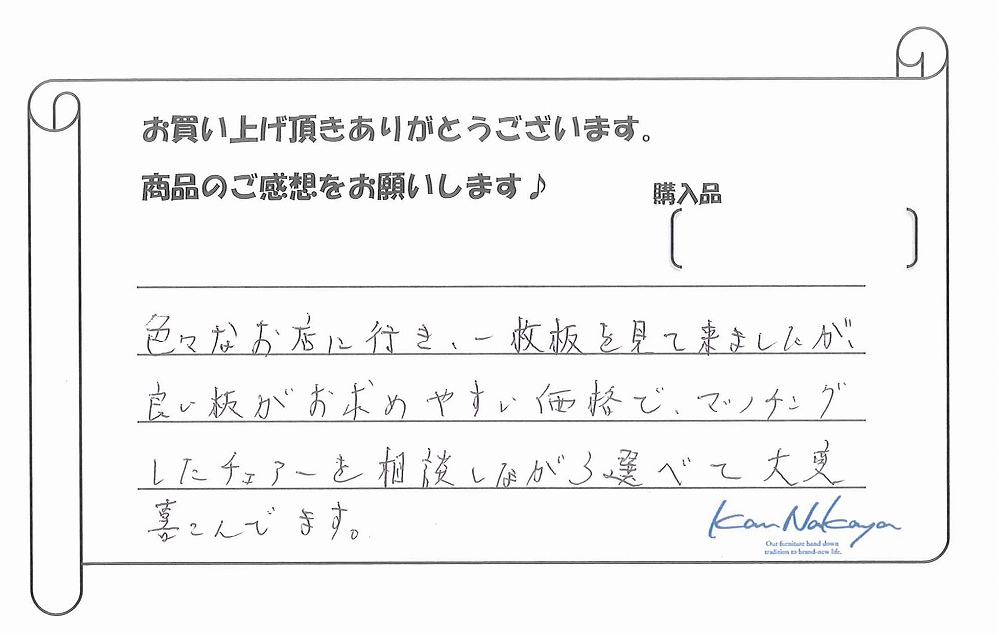 お買い上げ頂きありがとうございます。
商品のご感想をお願いします♪
購入品
色々なお店に行き、一枚板を見て来ましたが、
良い板がお求めやすい価格で、マッチング
したチェアーを相談しながら選べて大変
喜こんでます。
Kan Nakaya
Our furniture hand down
tradition to brand-new life.